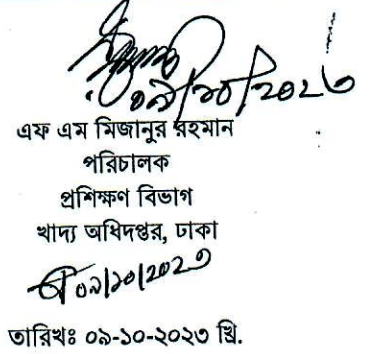 ০৯/১০/২০২৩
এফ এম মিজানুর রহমান
পরিচালক
প্রশিক্ষণ বিভাগ
খাদ্য অধিদপ্তর, ঢাকা
০৯/১০/২০২৩
তারিখঃ ০৯-১০-২০২৩ খ্রি.